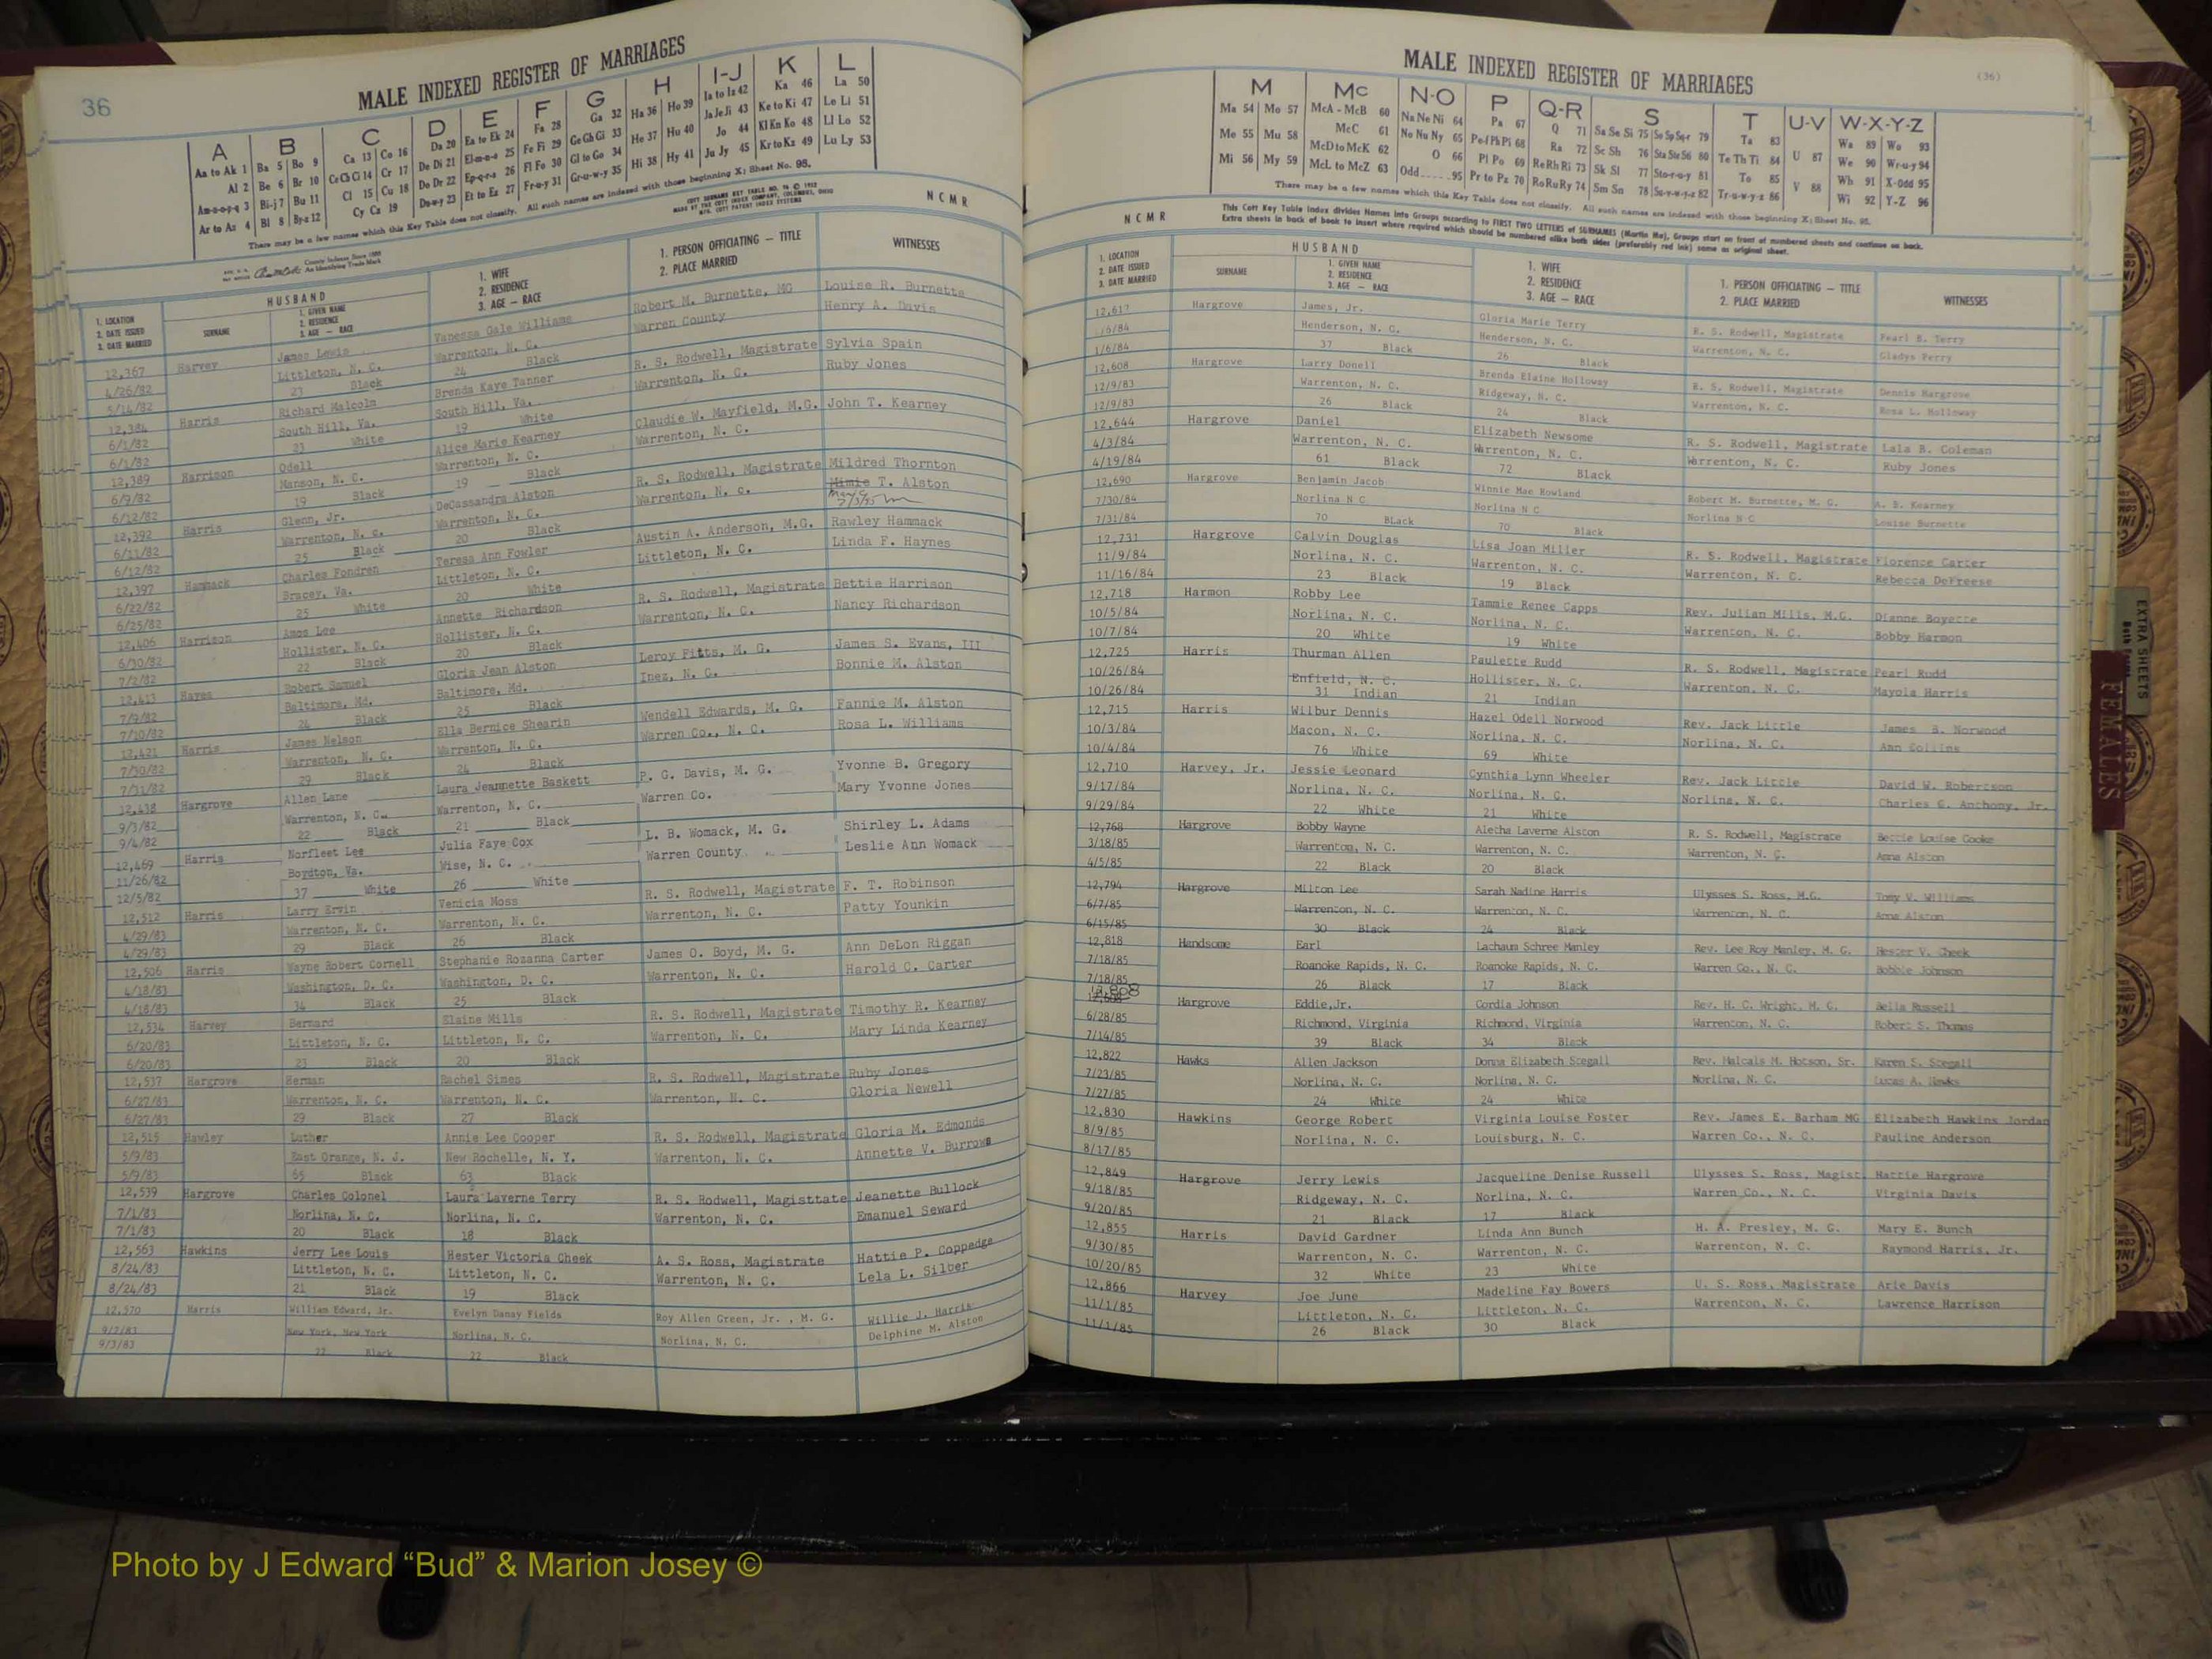 36
MALE INDEXED REGISTER OF MARRIAGES
A B C D E F G H I-J K L
Aa to Ak 1 Ba 5 Bo 9 Ca 13 Co 16 Da 20 Ea to Ek 24 Fa 28 Ga 32 Ha 36 Ho 39 Ia to Iz 42 Ka 46 La 50
Al 2 Be 6 Br 10 Ce Ch Ci 14 Cr 17 De Di 21 El-m-n-o 25 Fe Fi 29 Ge Gh Gi 33 He 37 Hu 40 Ja Je Ji 43 Ke to Ki 47 Le Li 51
Am-n-o-p-q 3 Bi-j 7 Bu 11 Cl 15 Cu 18 Do Dr 22 Ep-q-r-s 26 Fl Fo 30 Gl to Go 34 Hi 38 Hy 41 Jo 44 Kl Kn Ko 48 Ll Lo 52
Ar to Az 4 Bl 8 By-z 12 Cy Cz 19 Du-w-y 23 Et to Ez 27 Fr-u-y 31 Gr-u-w-y 35 Ju Jy 45 Kr to Kz 49 Lu Ly 53
There may be a few names which this Key Table does not classify. All such names are indexed with those beginning X; Sheet No. 95.
NCMR
HUSBAND
1. LOCATION 2. DATE ISSUED 3. DATE MARRIED
SURNAME
1. GIVEN NAME 2. RESIDENCE 3. AGE — RACE
1. WIFE 2. RESIDENCE 3. AGE — RACE
1. PERSON OFFICIATING — TITLE 2. PLACE MARRIED
WITNESSES
12,367 Harvey James Lewis Vanessa Gale Williams Robert M. Burnette, MG Louise R. Burnette
4/26/82 Littleton, N. C. Warrenton, N. C. Warren County Henry A. Davis
5/14/82 23 Black 24 Black
12,384 Harris Richard Malcolm Brenda Kaye Tanner R. S. Rodwell, Magistrate Sylvia Spain
6/1/82 South Hill, Va. South Hill, Va. Warrenton, N. C. Ruby Jones
6/1/82 23 White 19 White
12,389 Harrison Odell Alice Marie Kearney Claudie W. Mayfield, M.G. John T. Kearney
6/9/82 Manson, N. C. Warrenton, N. C. Warrenton, N. C.
6/12/82 19 Black 19 Black
12,392 Harris Glenn, Jr. DeCassandra Alston R. S. Rodwell, Magistrate Mildred Thornton
6/11/82 Warrenton, N. C. Warrenton, N. C. Warrenton, N. c. Mimie T. Alston
6/12/82 25 Black 20 Black
12,397 Hammack Charles Fondren Teresa Ann Fowler Austin A. Anderson, M.G. Rawley Hammack
6/22/82 Bracey, Va. Littleton, N. C. Littleton, N. C. Linda F. Haynes
6/25/82 25 White 20 White
12,406 Harrison Amos Lee Annette Richardson R. S. Rodwell, Magistrate Bettie Harrison
6/30/82 Hollister, N. C. Hollister, N. C. Warrenton, N. C. Nancy Richardson
7/2/82 22 Black 20 Black
12,413 Hayes Robert Samuel Gloria Jean Alston Leroy Fitts, M. G. James S. Evans, III
7/9/82 Baltimore, Md. Baltimore, Md. Inez, N. C. Bonnie M. Alston
7/10/82 24 Black 25 Black
12,421 Harris James Nelson Ella Bernice Shearin Wendell Edwards, M. G. Fannie M. Alston
7/30/82 Warrenton, N. C. Warrenton, N. C. Warren Co., N. C. Rosa L. Williams
7/31/82 29 Black 24 Black
12,438 Hargrove Allen Lane Laura Jeannette Baskett P. G. Davis, M. G. Yvonne B. Gregory
9/3/82 Warrenton, N. C. Warrenton, N. C. Warren Co. Mary Yvonne Jones
9/4/82 22 Black 21 Black
12,469 Harris Norfleet Lee Julia Faye Cox L. B. Womack, M. G. Shirley L. Adams
11/26/82 Boydton, Va. Wise, N. C. Warren County Leslie Ann Womack
12/5/82 37 White 26 White
12,512 Harris Larry Ervin Venicia Moss R. S. Rodwell, Magistrate F. T. Robinson
4/29/83 Warrenton, N. C. Warrenton, N. C. Warrenton, N. C. Patty Younkin
4/29/83 29 Black 26 Black
12,506 Harris Wayne Robert Cornell Stephanie Rozanna Carter James O. Boyd, M. G. Ann DeLon Riggan
4/18/83 Washington, D. C. Washington, D. C. Warrenton, N. C. Harold C. Carter
4/18/83 34 Black 25 Black
12,534 Harvey Bernard Elaine Mills R. S. Rodwell, Magistrate Timothy R. Kearney
6/20/83 Littleton, N. C. Littleton, N. C. Warrenton, N. C. Mary Linda Kearney
6/20/83 23 Black 20 Black
12,537 Hargrove Herman Rachel Simes R. S. Rodwell, Magistrate Ruby Jones
6/27/83 Warrenton, N. C. Warrenton, N. C. Warrenton, N. C. Gloria Newell
6/27/83 29 Black 27 Black
12,515 Hawley Luther Annie Lee Cooper R. S. Rodwell, Magistrate Gloria M. Edmonds
5/9/83 East Orange, N. J. New Rochelle, N. Y. Warrenton, N. C. Annette V. Burrows
5/9/83 65 Black 63 Black
12,539 Hargrove Charles Colonel Laura Laverne Terry R. S. Rodwell, Magisttate Jeanette Bullock
7/1/83 Norlina, N. C. Norlina, N. C. Warrenton, N. C. Emanuel Seward
7/1/83 20 Black 18 Black
12,563 Hawkins Jerry Lee Louis Hester Victoria Cheek A. S. Ross, Magistrate Hattie P. Coppedge
8/24/83 Littleton, N. C. Littleton, N. C. Warrenton, N. C. Lela L. Silber
8/24/83 21 Black 19 Black
12,570 Harris William Edward, Jr. Evelyn Danay Fields Roy Allen Green, Jr., M. G. Willie J. Harris
9/2/83 New York, New York Norlina, N. C. Norlina, N. C. Delphine M. Alston
9/3/83 22 Black 22 Black
MALE INDEXED REGISTER OF MARRIAGES
(36)
M Mc N-O P Q-R S T U-V W-X-Y-Z
Ma 54 Mo 57 McA - McB 60 Na Ne Ni 64 Pa 67 Q 71 Sa Se Si 75 So Sp Sq-r 79 Ta 83 Wa 89 Wo 93
Me 55 Mu 58 McC 61 No Nu Ny 65 Pe-f Ph Pi 68 Ra 72 Sc Sh 76 Sta Ste Sti 80 Te Th Ti 84 U 87 We 90 Wr-u-y 94
Mi 56 My 59 McD to McK 62 O 66 Pl Po 69 Re Rh Ri 73 Sk Sl 77 Sto-r-u-y 81 To 85 Wh 91 X-Odd 95
McL to McZ 63 Odd 95 Pr to Pz 70 Ro Ru Ry 74 Sm Sn 78 Su-v-w-y-z 82 Tr-u-w-y-z 86 V 88 Wi 92 Y-Z 96
There may be a few names which this Key Table does not classify. All such names are indexed with those beginning X; Sheet No. 95.
This Cott Key Table Index divides Names into Groups according to FIRST TWO LETTERS of SURNAMES (Martin Ma), Groups start on front of numbered sheets and continue on back.
Extra sheets in back of book to insert where required which should be numbered alike both sides (preferably red ink) same as original sheet.
NCMR
HUSBAND
1. LOCATION 2. DATE ISSUED 3. DATE MARRIED
SURNAME
1. GIVEN NAME 2. RESIDENCE 3. AGE — RACE
1. WIFE 2. RESIDENCE 3. AGE — RACE
1. PERSON OFFICIATING — TITLE 2. PLACE MARRIED
WITNESSES
12,617 Hargrove James, Jr. Gloria Marie Terry R. S. Rodwell, Magistrate Pearl B. Terry
1/6/84 Henderson, N. C. Henderson, N. C. Warrenton, N. C. Gladys Perry
1/6/84 37 Black 26 Black
12,608 Hargrove Larry Donell Brenda Elaine Holloway R. S. Rodwell, Magistrate Dennis Hargrove
12/9/83 Warrenton, N. C. Ridgeway, N. C. Warrenton, N. C. Rosa L. Holloway
12/9/83 26 Black 24 Black
12,644 Hargrove Daniel Elizabeth Newsome R. S. Rodwell, Magistrate Lala B. Coleman
4/3/84 Warrenton, N. C. Warrenton, N. C. Warrenton, N. C. Ruby Jones
4/19/84 61 Black 72 Black
12,690 Hargrove Benjamin Jacob Winnie Mae Rowland Robert M. Burnette, M. G. A. B. Kearney
7/30/84 Norlina N C Norlina N C Norlina N C Louise Burnette
7/31/84 70 BLack 70 Black
12,731 Hargrove Calvin Douglas Lisa Joan Miller R. S. Rodwell, Magistrate Florence Carter
11/9/84 Norlina, N. C. Warrenton, N. C. Warrenton, N. C. Rebecca DeFreese
11/16/84 23 Black 19 Black
12,718 Harmon Robby Lee Tammie Renee Capps Rev. Julian Mills, M.G. Dianne Boyette
10/5/84 Norlina, N. C. Norlina, N. C. Warrenton, N. C. Bobby Harmon
10/7/84 20 White 19 White
12,725 Harris Thurman Allen Paulette Rudd R. S. Rodwell, Magistrate Pearl Rudd
10/26/84 Enfield, N. C. Hollister, N. C. Warrenton, N. C. Mayola Harris
10/26/84 31 Indian 21 Indian
12,715 Harris Wilbur Dennis Hazel Odell Norwood Rev. Jack Little James B. Norwood
10/3/84 Macon, N. C. Norlina, N. C. Norlina, N. C. Ann Collins
10/4/84 76 White 69 White
12,710 Harvey, Jr. Jessie Leonard Cynthia Lynn Wheeler Rev. Jack Little David W. Robertson
9/17/84 Norlina, N. C. Norlina, N. C. Norlina, N. C. Charles G. Anthony, Jr.
9/29/84 22 White 21 White
12,768 Hargrove Bobby Wayne Aletha Laverne Alston R. S. Rodwell, Magistrate Bettie Louise Cooke
3/18/85 Warrenton, N. C. Warrenton, N. C. Warrenton, N. C. Anna Alston
4/5/85 22 Black 20 Black
12,794 Hargrove Milton Lee Sarah Nadine Harris Ulysses S. Ross, M.G. Tomy V. Williams
6/7/85 Warrenton, N. C. Warrenton, N. C. Warrenton, N. C. Anna Alston
6/15/85 30 Black 24 Black
12,818 Handsome Earl Lachaun Schree Manley Rev. Lee Roy Manley, M. G. Hester V. Cheek
7/18/85 Roanoke Rapids, N. C. Roanoke Rapids, N. C. Warren Co., N. C. Bobbie Johnson
7/18/85 26 Black 17 Black
12,808 Hargrove Eddie,Jr. Cordia Johnson Rev. H. C. Wright, M. G. Bella Russell
6/28/85 Richmond, Virginia Richmond, Virginia Warrenton, N. C. Robert S. Thomas
7/14/85 39 Black 34 Black
12,822 Hawks Allen Jackson Donna Elizabeth Stegall Rev. Malcais M. Hotson, Sr. Karen S. Stegall
7/23/85 Norlina, N. C. Norlina, N. C. Norlina, N. C. Lucas A. Hawks
7/27/85 24 White 24 White
12,830 Hawkins George Robert Virginia Louise Foster Rev. James E. Barham MG Elizabeth Hawkins Jordan
8/9/85 Norlina, N. C. Louisburg, N. C. Warren Co., N. C. Pauline Anderson
8/17/85
12,849 Hargrove Jerry Lewis Jacqueline Denise Russell Ulysses S. Ross, Magist. Hattie Hargrove
9/18/85 Ridgeway, N. C. Norlina, N. C. Warren Co., N. C. Virginia Davis
9/20/85 21 Black 17 Black
12,855 Harris David Gardner Linda Ann Bunch H. A. Presley, M. G. Mary E. Bunch
9/30/85 Warrenton, N. C. Warrenton, N. C. Warrenton, N. C. Raymond Harris, Jr.
10/20/85 32 White 23 White
12,866 Harvey Joe June Madeline Fay Bowers U. S. Ross, Magistrate Arie Davis
11/1/85 Littleton, N. C. Littleton, N. C. Warrenton, N. C. Lawrence Harrison
11/1/85 26 Black 30 Black
EXTRA SHEETS
FEMALES
Photo by J Edward “Bud” & Marion Josey ©